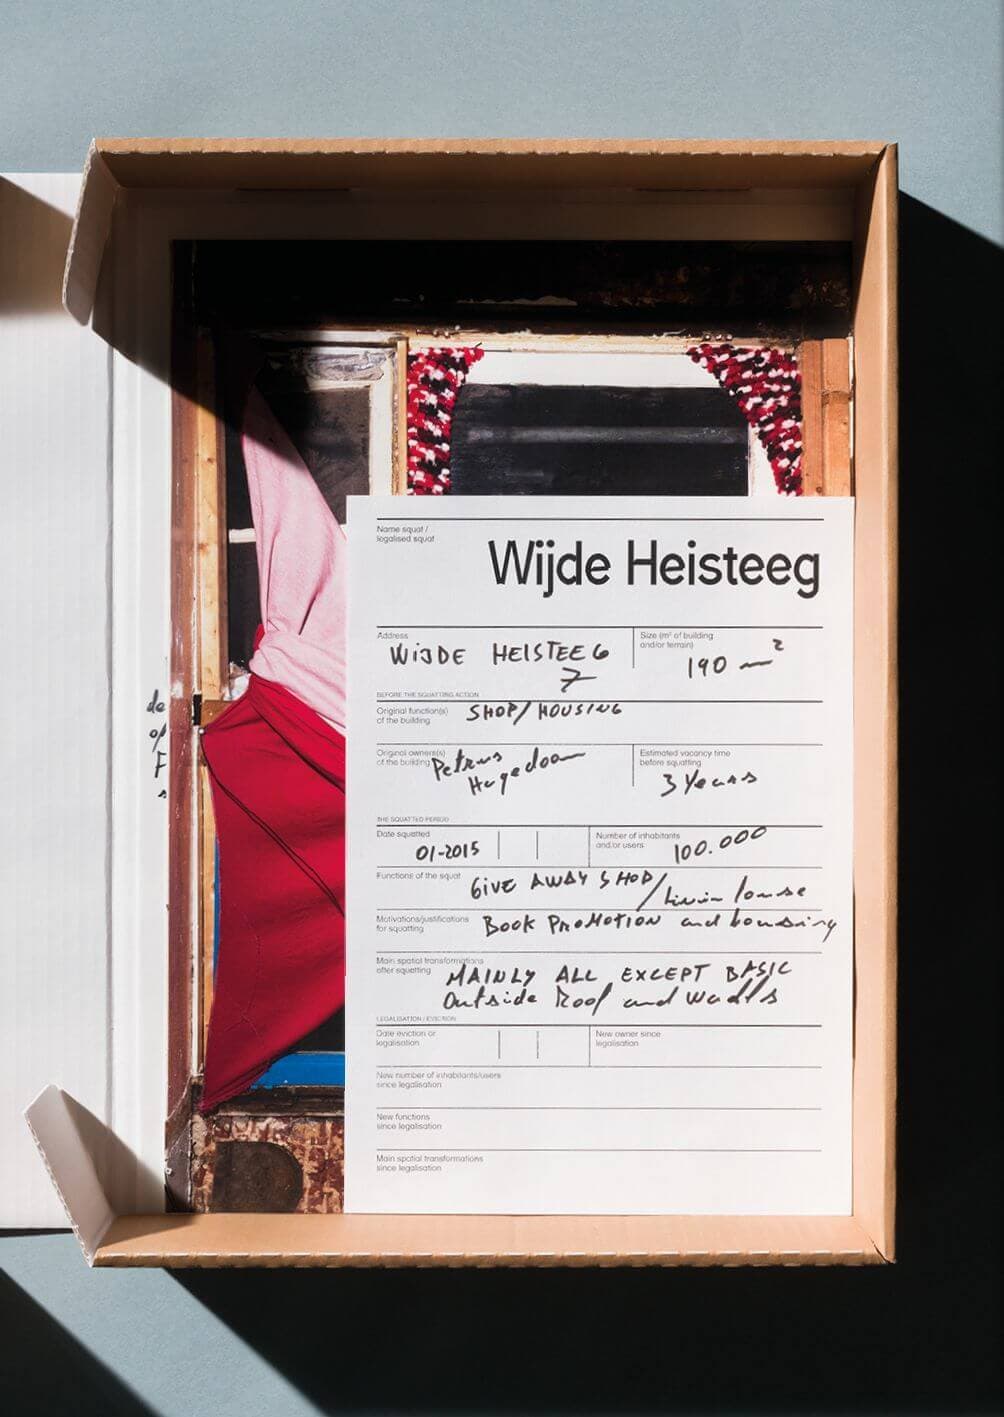 Name squat /
legalised squat
Wijde Heisteeg
Address
WIJDE HEISTEEG
7
Size (m² of building
and/or terrain)
190 m²
BEFORE THE SQUATTING ACTION
Original function(s)
of the building
SHOP/HOUSING
Original owner(s)
of the building
Petrus
Hagedoorn
Estimated vacancy time
before squatting
3 Years
THE SQUATTED PERIOD
Date squatted
01-2015
Number of inhabitants
and/or users
100.000
Functions of the squat
GIVE AWAY SHOP/
Motivations/justifications
for squatting
BOOK PROMOTION and housing
Main spatial transformations
after squatting
MAINLY ALL EXCEPT BASIC
outside Roof and walls
LEGALISATION / EVICTION
Date eviction or
legalisation
New owner since
legalisation
New number of inhabitants/users
since legalisation
New functions
since legalisation
Main spatial transformations
since legalisation
de
op
F
s